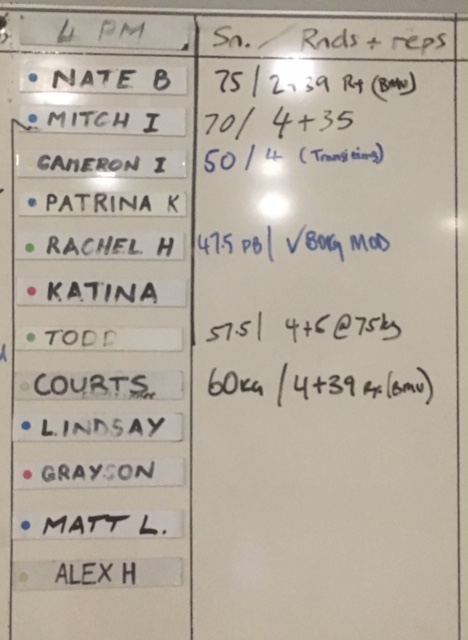 4 PM Sn. / Rnds + reps
NATE B 75 / 2+39 Rx (BMU)
MITCH I 70 / 4+35
CAMERON I 50 / 4 (Transiting)
PATRINA K
RACHEL H 47.5 PB / √ 80kg MOD
KATINA
TODD 57.5 / 4+6 @ 75kg
COURTS 60kg / 4+39 Rx (BMU)
LINDSAY
GRAYSON
MATT L.
ALEX H